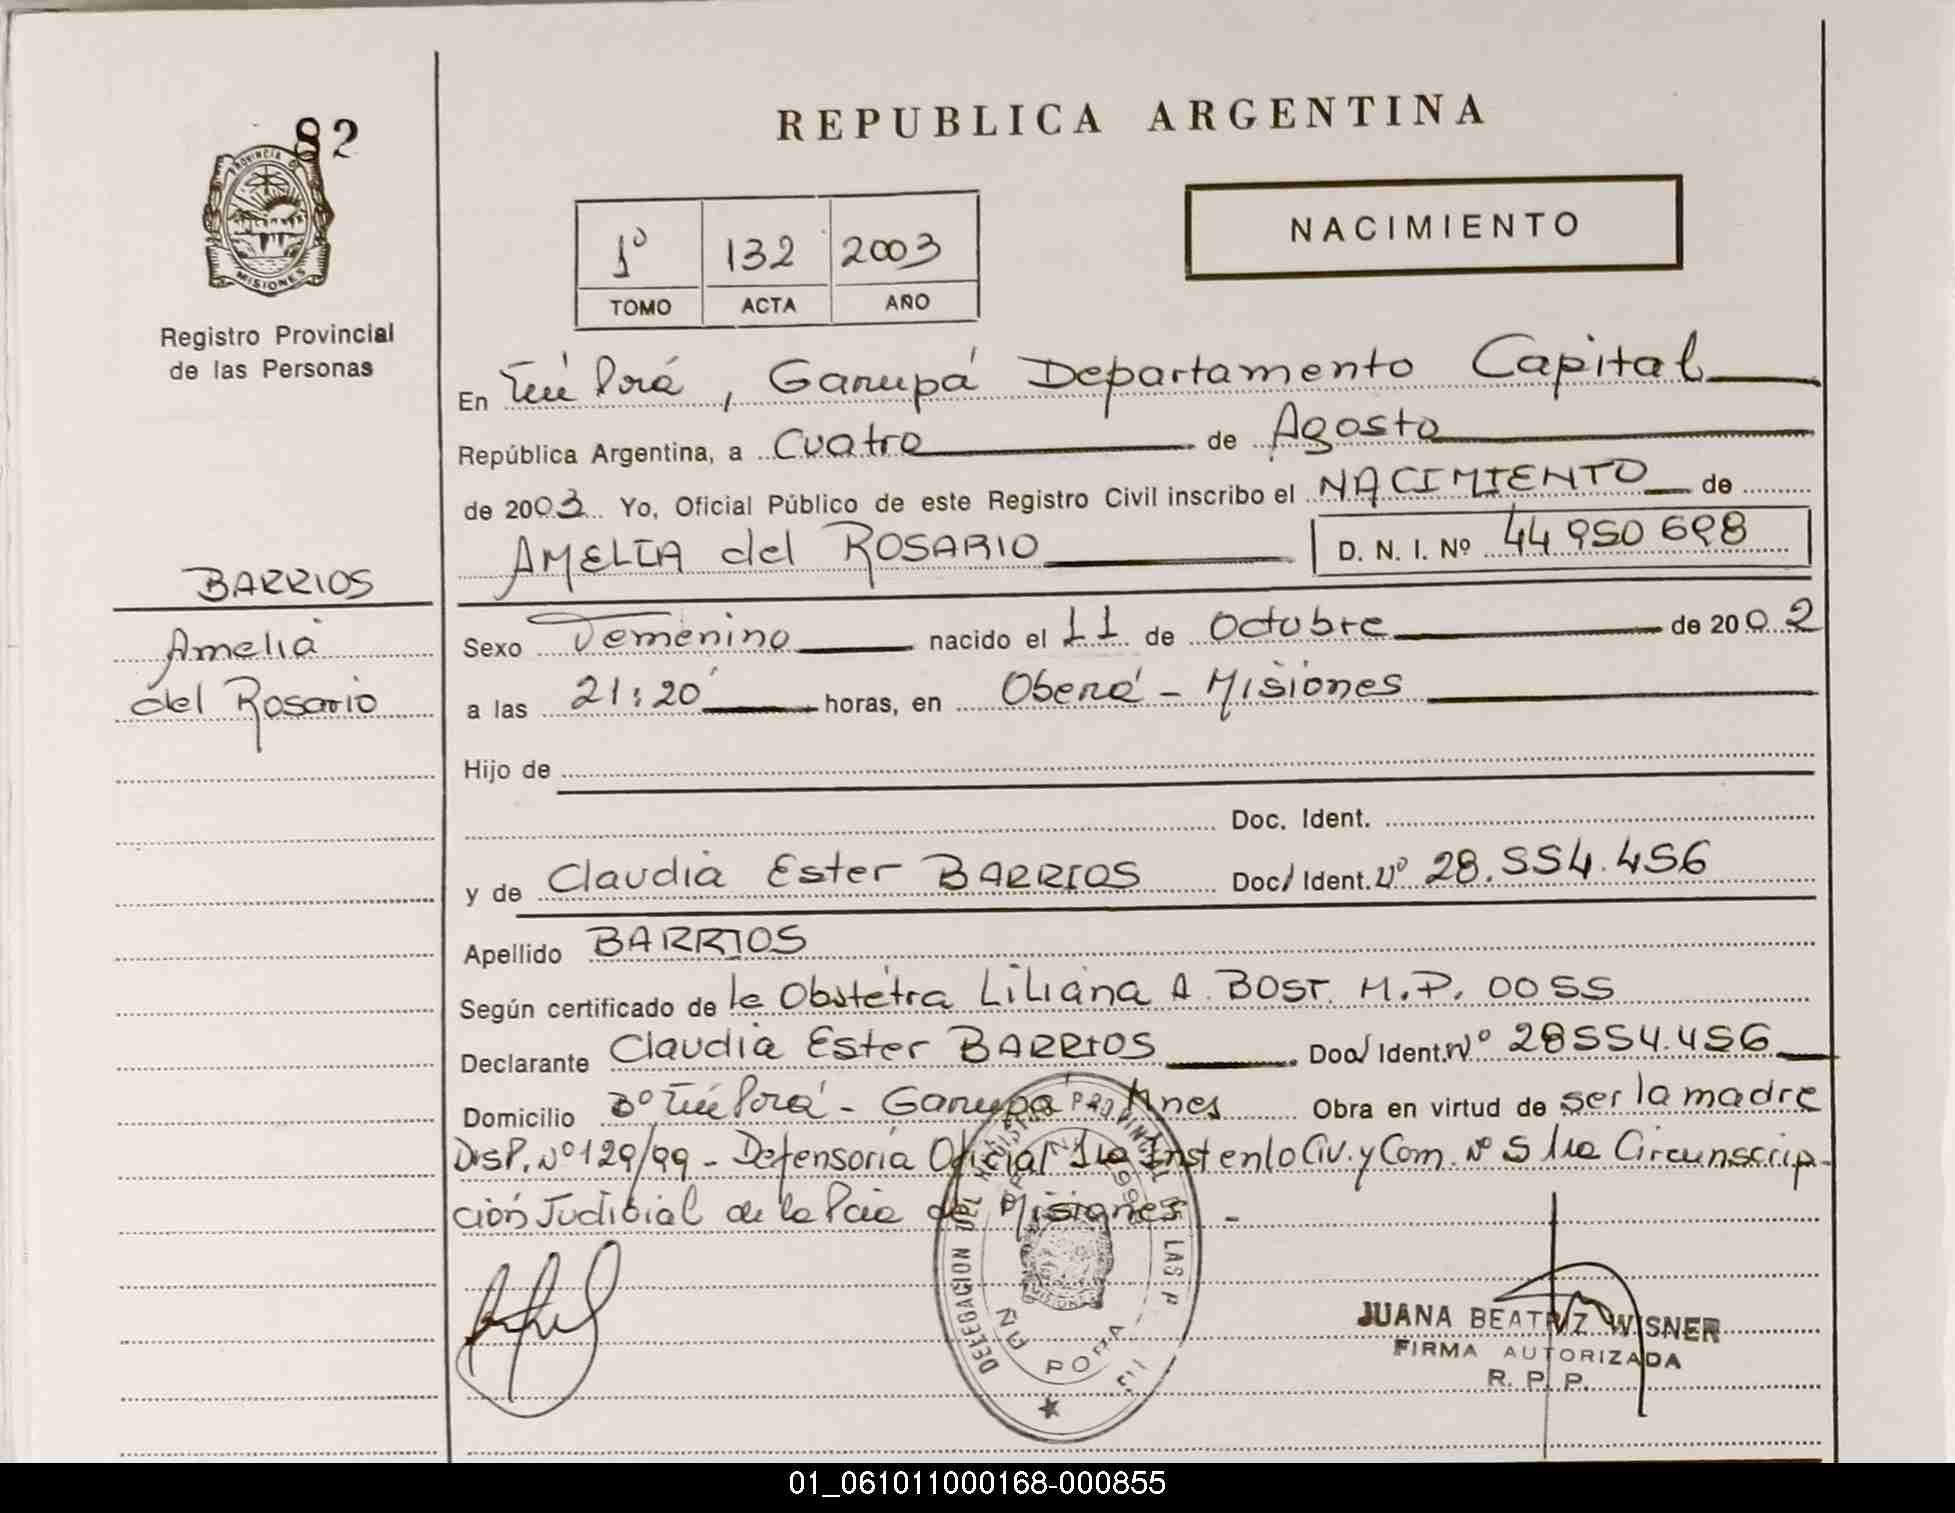 82
PROVINCIA DE
MISIONES
Registro Provincial
de las Personas
REPUBLICA ARGENTINA
1º 132 2003
TOMO ACTA AÑO
NACIMIENTO
En Ñu Porá, Garupá Departamento Capital
República Argentina, a Cuatro de Agosto
de 2003 Yo, Oficial Público de este Registro Civil inscribo el NACIMIENTO de
AMELIA del ROSARIO D. N. I. Nº 44950698
BARRIOS
Amelia
del Rosario
Sexo Femenino nacido el 11 de Octubre de 2002
a las 21:20 horas, en Oberá - Misiones
Hijo de
Doc. Ident.
y de Claudia Ester BARRIOS Doc/ Ident. Nº 28.554.456
Apellido BARRIOS
Según certificado de la Obstétra Liliana A. BOST. M.P. 0055
Declarante Claudia Ester BARRIOS Doc/ Ident. Nº 28554.456
Domicilio Bº Ñu Porá - Garupá Mnes Obra en virtud de ser la madre
Disp. Nº 129/99 - Defensoria Oficial 1ra Inst en lo Civ. y Com. Nº 5 1ra Circunscrip-
ción Judicial de la Pcia de Misiones -
DELEGACION DEL REGISTRO PROVINCIAL DE LAS P
PORA
MISIONES
JUANA BEATRIZ WISNER
FIRMA AUTORIZADA
R. P. P.
01_061011000168-000855